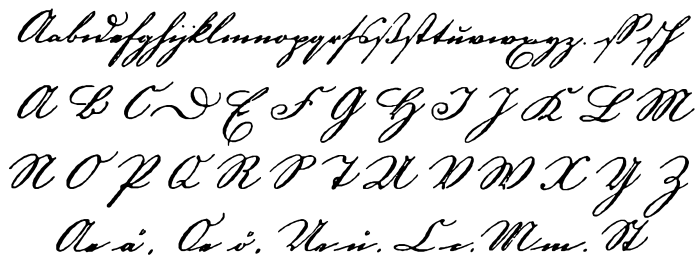 Aabcdefghijklmnopqrſsßſttuvwxyz. ſſ ſch
A B C D E F G H I J K L M
N O P Q R S T U V W X Y Z
Ae ä. Oe ö. Ue ü. C c. M m. St